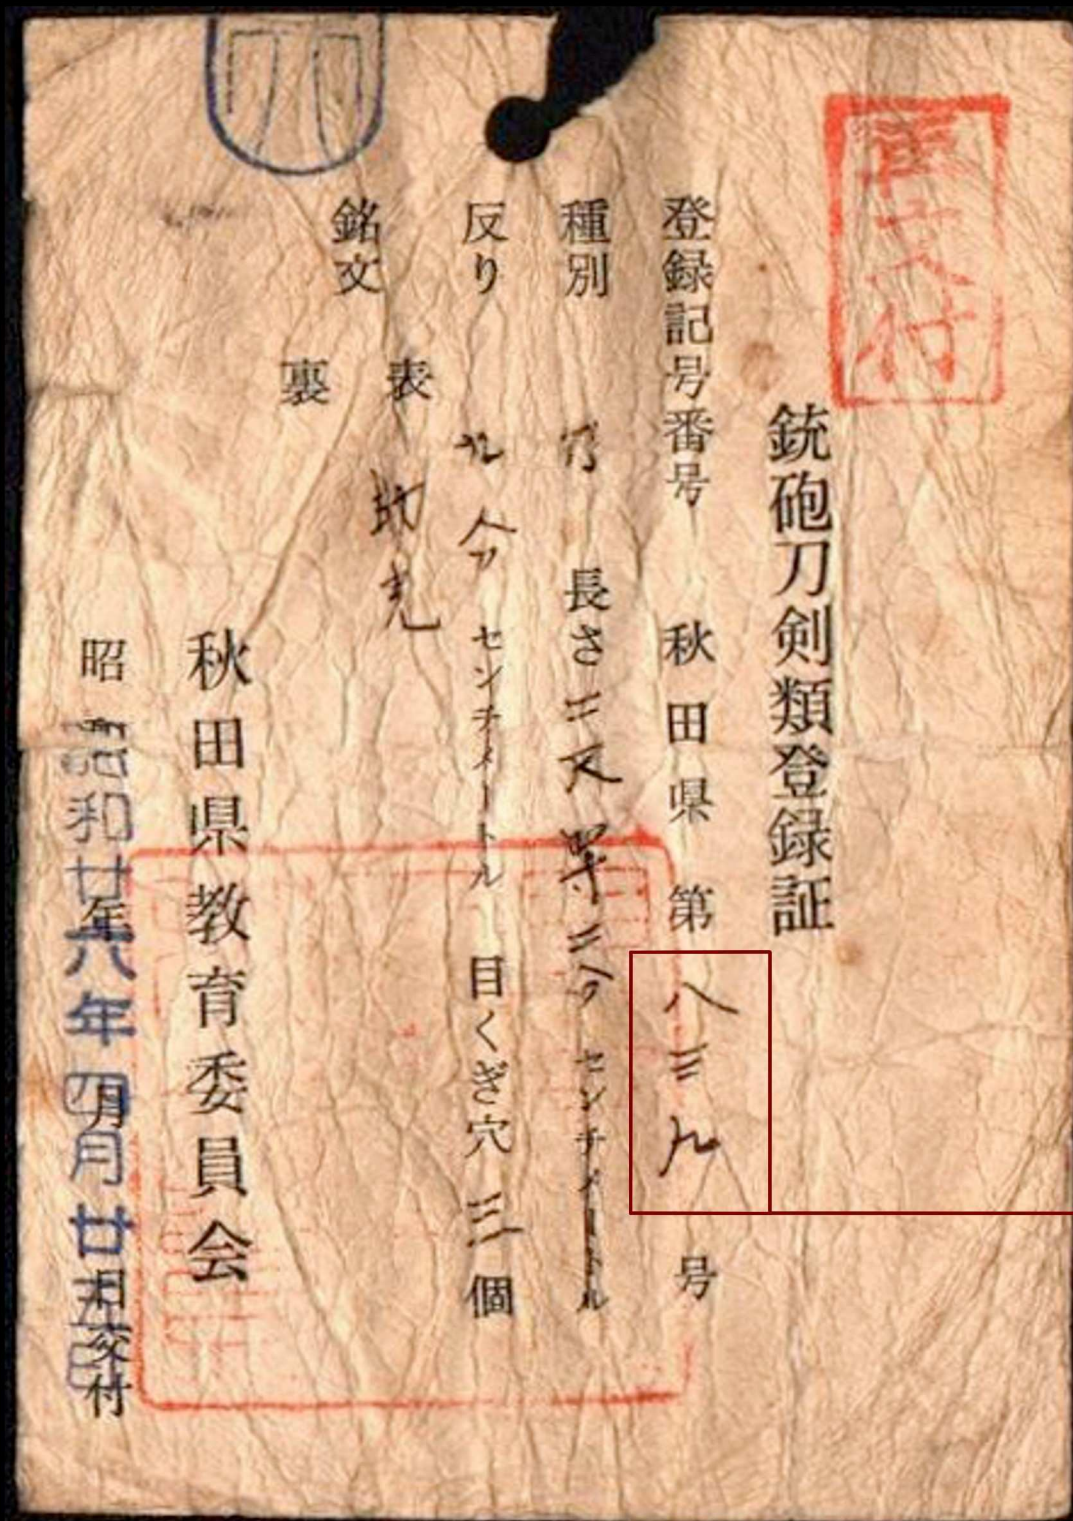 再交付
銃砲刀剣類登録証
登録記号番号 秋田県 第 八三九 号
種別 刀 長さ 二尺 四寸 二分 センチメートル
反り 九分 センチメートル 目くぎ穴 三 個
銘文 表
裏
秋田県教育委員会
昭 年 月 日 交付
昭和廿六年四月廿五日